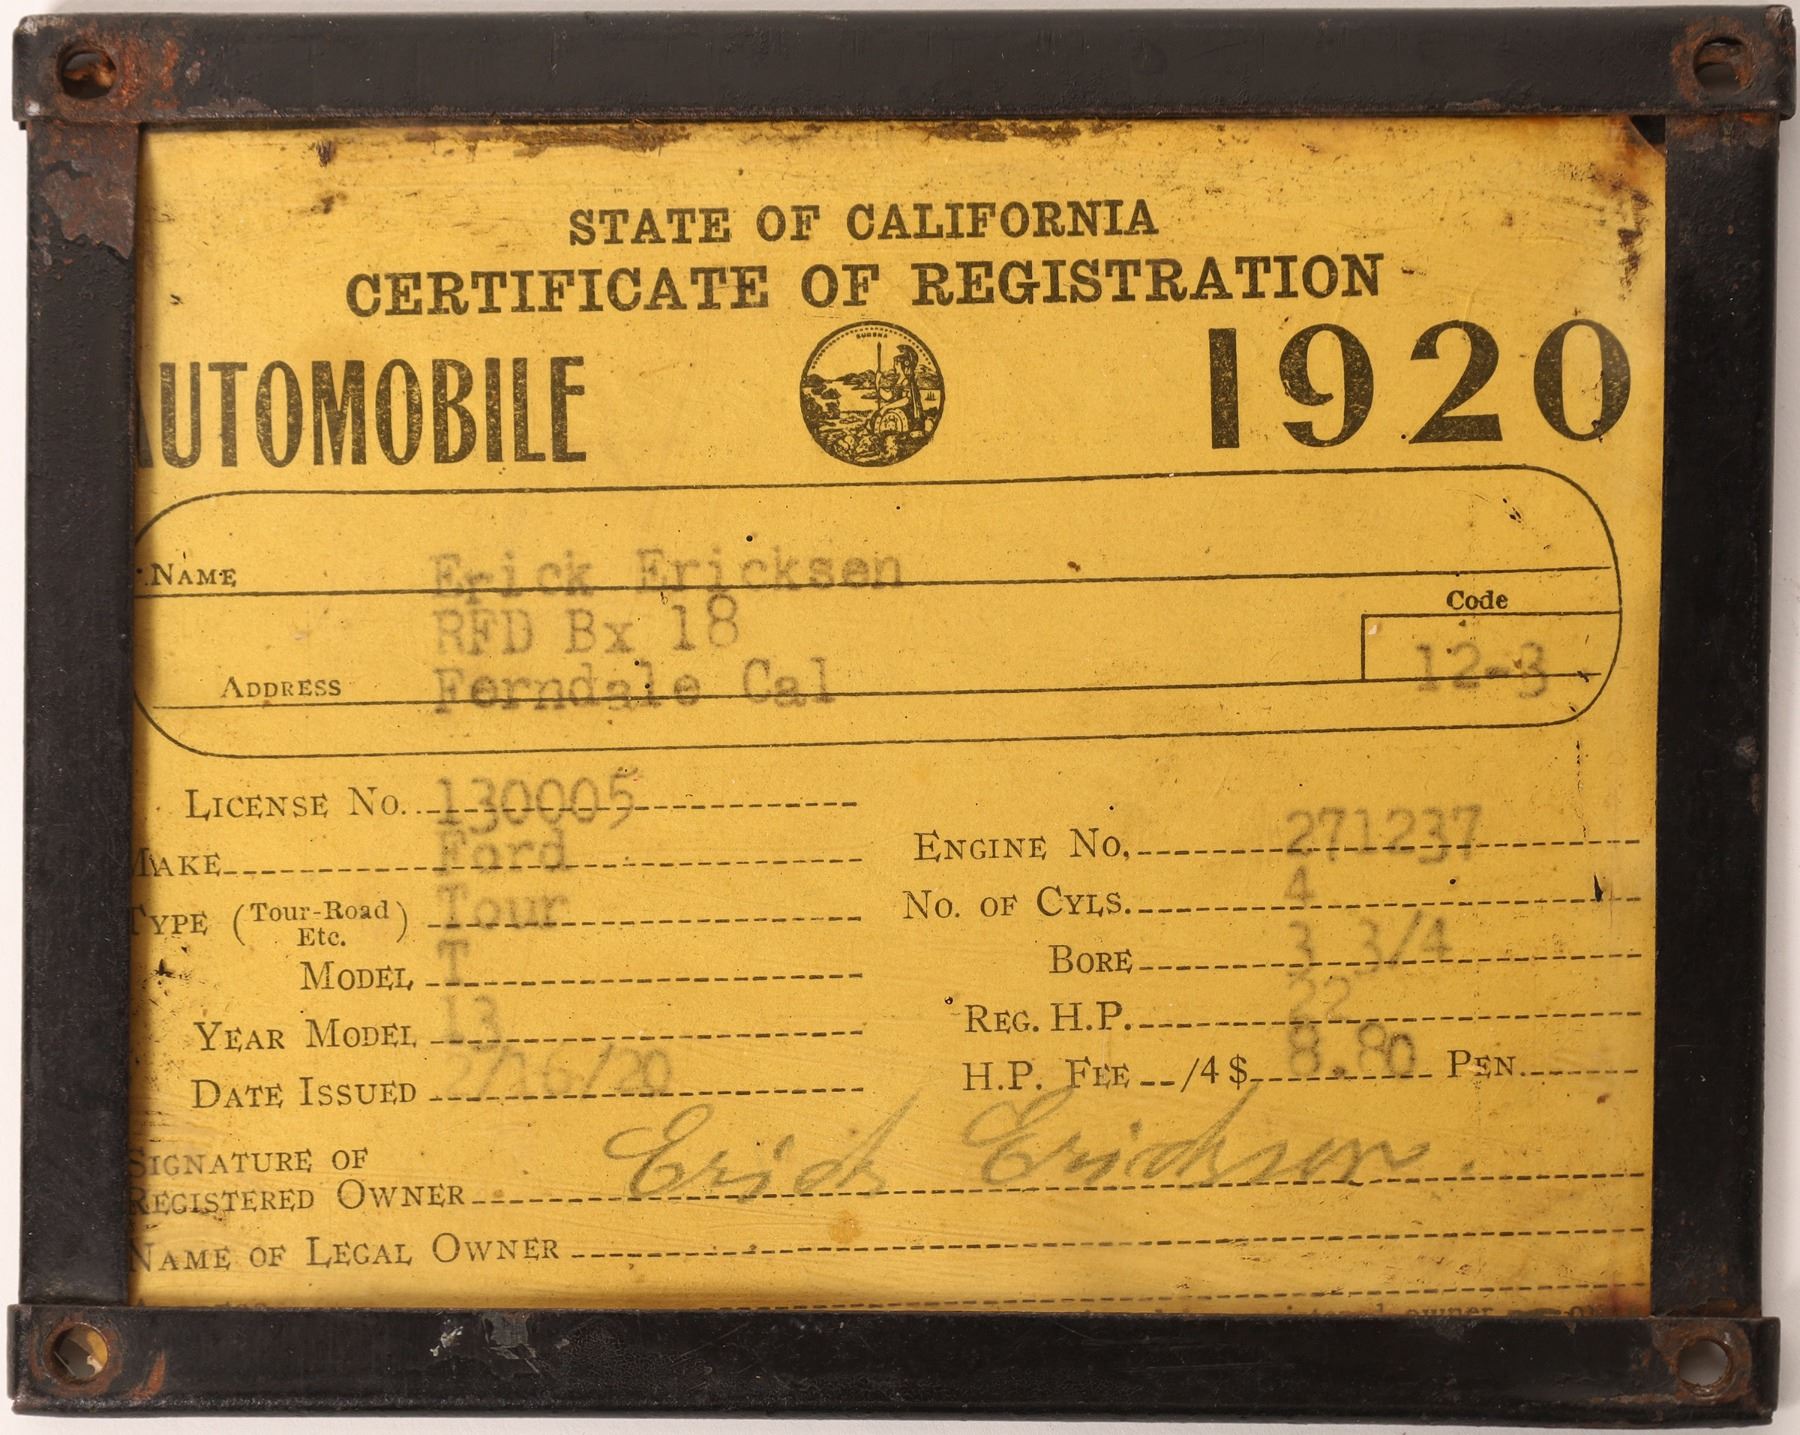 STATE OF CALIFORNIA
CERTIFICATE OF REGISTRATION
AUTOMOBILE 1920
EUREKA
NAME Erick Ericksen
RFD Bx 18
Code
ADDRESS Ferndale Cal 12-3
LICENSE No. 130005
MAKE Ford
ENGINE No. 271237
TYPE (Tour-Road Etc.) Tour
No. OF CYLS. 4
MODEL T
BORE 3 3/4
YEAR MODEL 13
REG. H.P. 22
DATE ISSUED 2/16/20
H.P. FEE /4 $ 8.80 PEN.
SIGNATURE OF
REGISTERED OWNER Erick Ericksen.
NAME OF LEGAL OWNER
owner